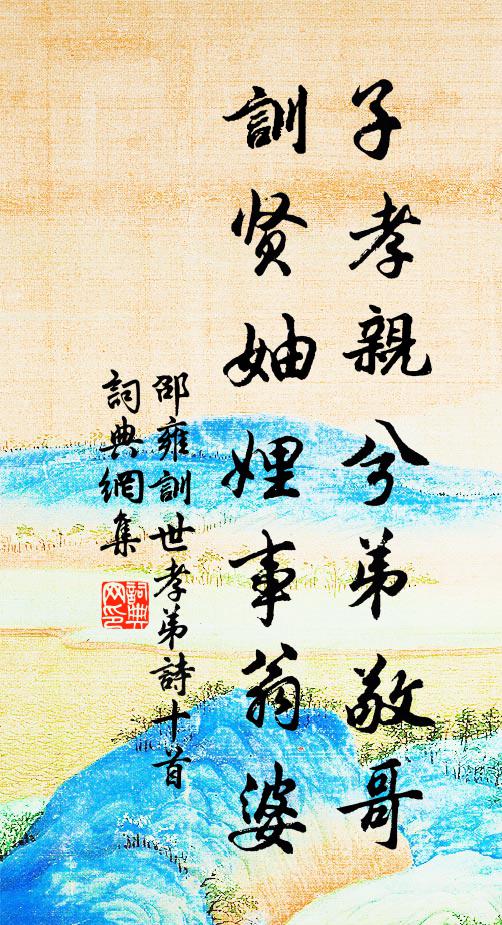 子孝親兮弟敬哥
訓贤妯娌事翁婆
邵雍訓世孝弟詩十首
詞典網集
詞典